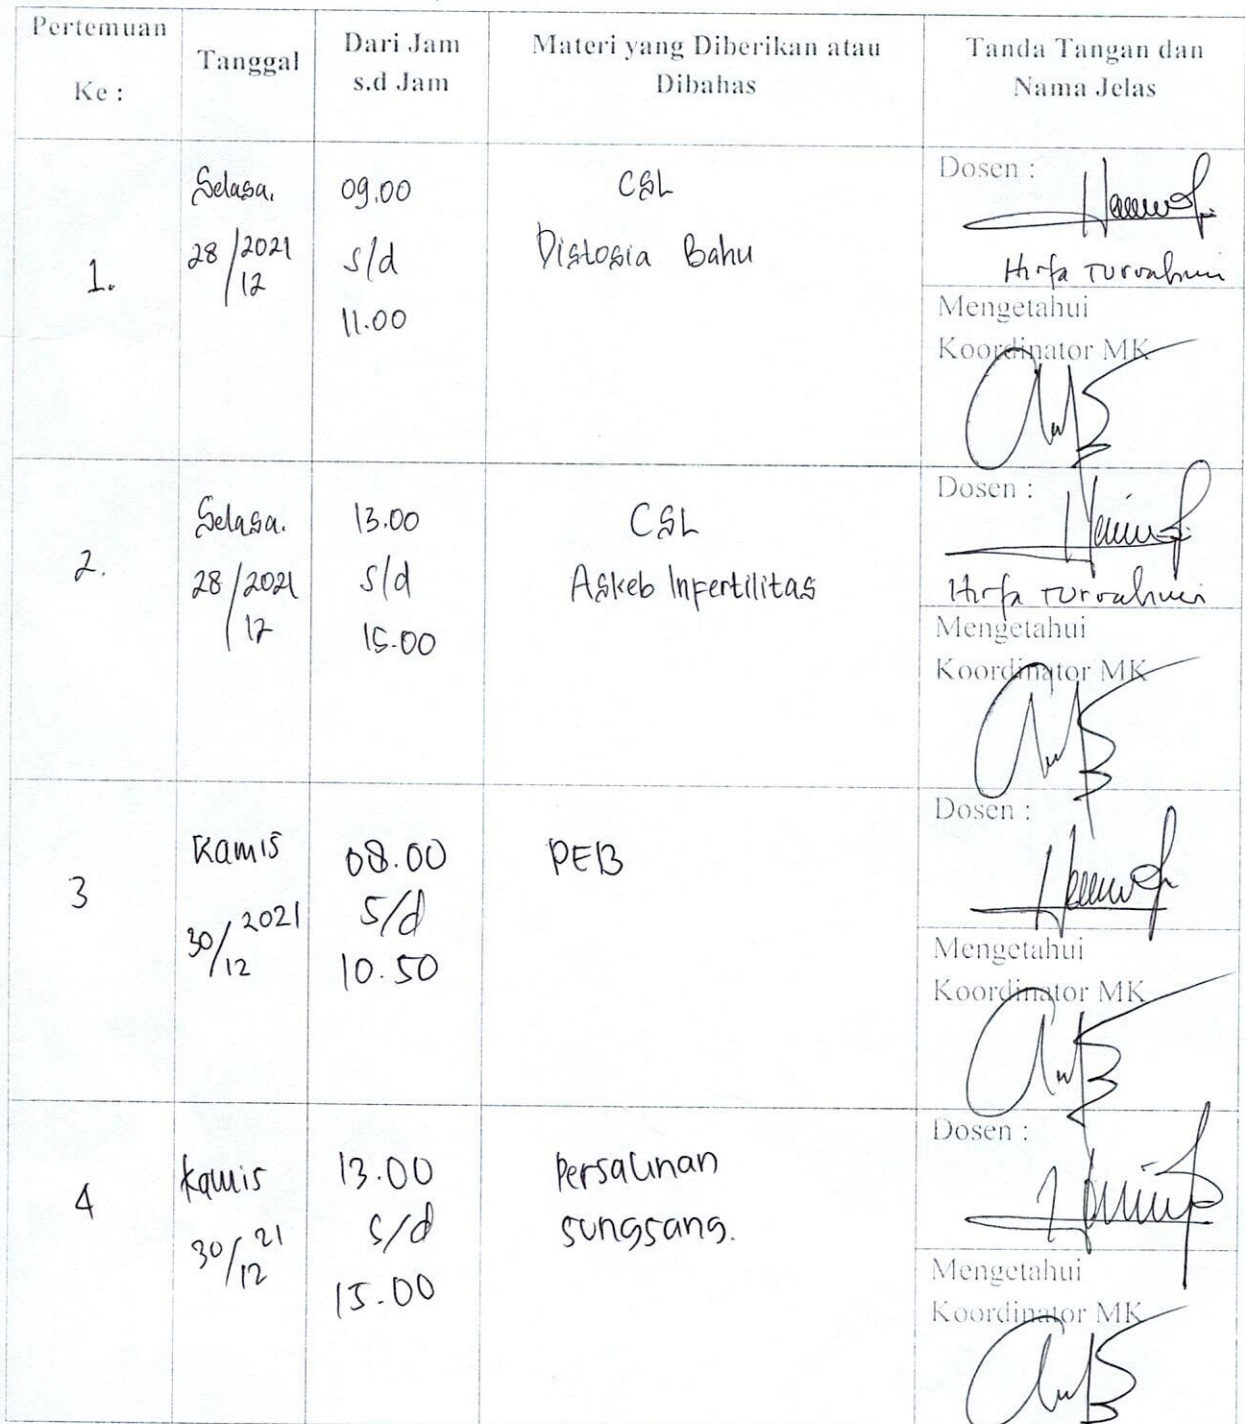 Pertemuan
Ke :
Tanggal
Dari Jam
s.d Jam
Materi yang Diberikan atau
Dibahas
Tanda Tangan dan
Nama Jelas
1.
Selasa.
28/12 2021
09.00
s/d
11.00
CSL
Distosia Bahu
Dosen :
Hirfa
Mengetahui
Koordinator MK
2.
Selasa.
28/12 2021
13.00
s/d
15.00
CSL
Askeb Infertilitas
Dosen :
Hirfa
Mengetahui
Koordinator MK
3
Kamis
30/12 2021
08.00
s/d
10.50
PEB
Dosen :
Mengetahui
Koordinator MK
4
Kamis
30/12 21
13.00
s/d
15.00
Persalinan
sungsang.
Dosen :
Mengetahui
Koordinator MK